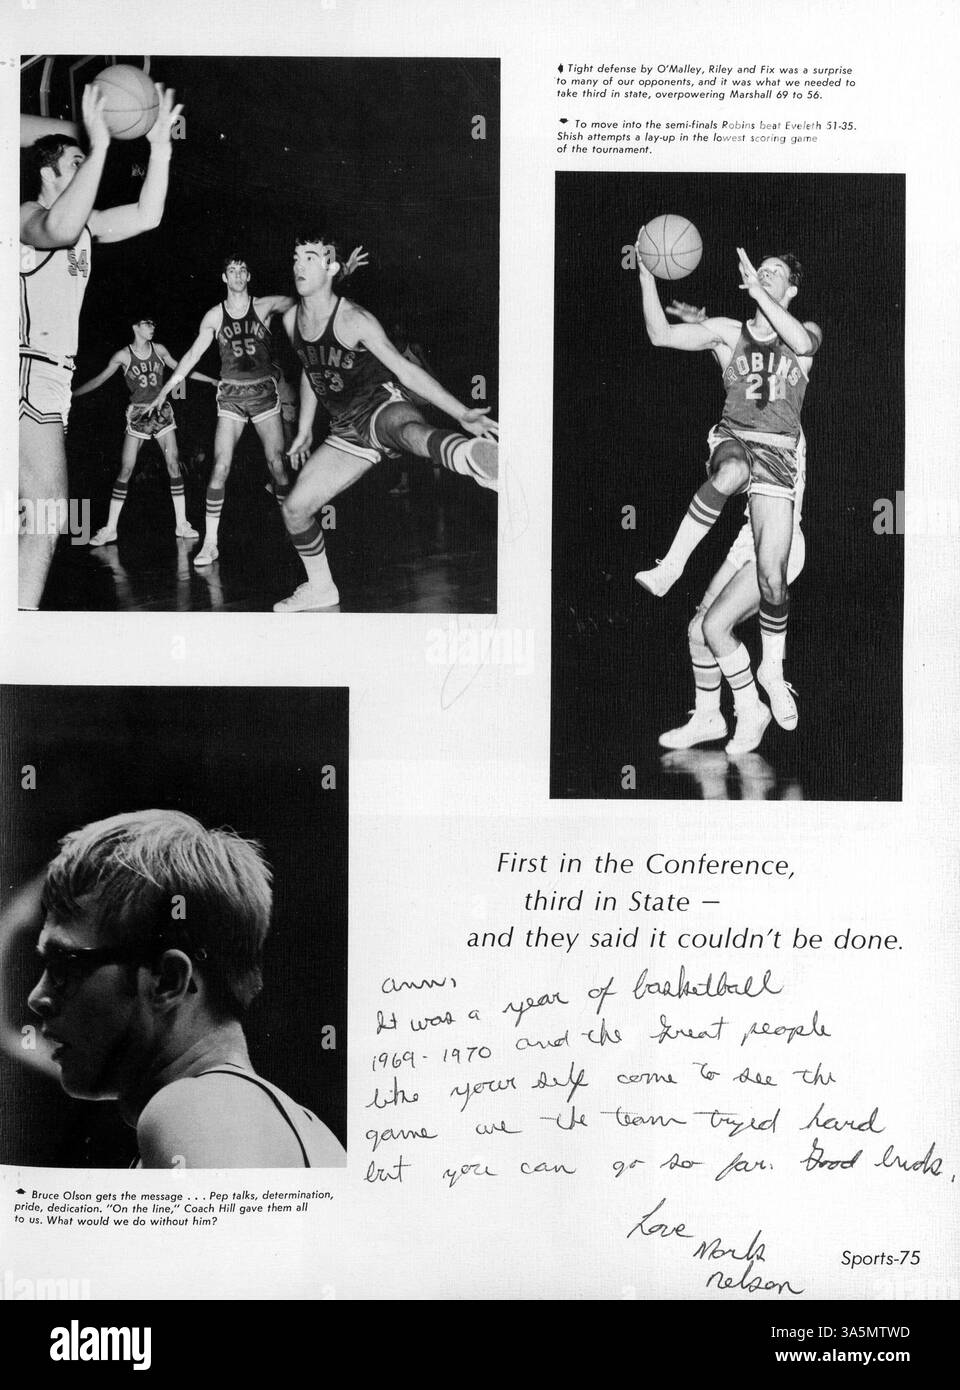 Tight defense by O'Malley, Riley and Fix was a surprise
to many of our opponents, and it was what we needed to
take third in state, overpowering Marshall 69 to 56.
To move into the semi-finals Robins beat Eveleth 51-35.
Shish attempts a lay-up in the lowest scoring game
of the tournament.
34
ROBINS
33
ROBINS
55
ROBINS
53
ROBINS
21
First in the Conference,
third in State —
and they said it couldn't be done.
Ann,
It was a year of basketball
1969-1970 and the great people
like your self come to see the
game we the team tryed hard
but you can go so far. Good luck.
Love
Mark
Nelson
Bruce Olson gets the message . . . Pep talks, determination,
pride, dedication. "On the line," Coach Hill gave them all
to us. What would we do without him?
Sports-75
alamy
Image ID: 3A5MTWD
www.alamy.com